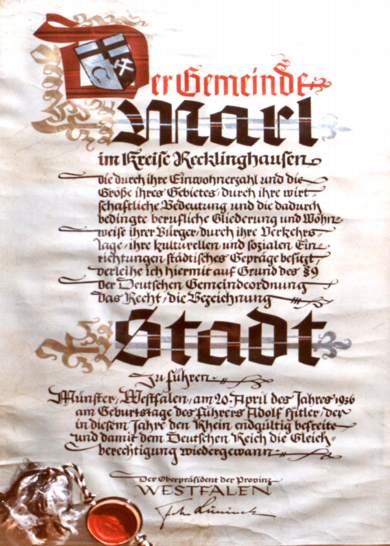 Der Gemeinde
Marl
im Kreise Recklinghausen
die durch ihre Einwohnerzahl und die
Größe ihres Gebietes/durch ihre wirt-
schaftliche Bedeutung und die dadurch
bedingte berufliche Gliederung und Wohn-
weise ihrer Bürger/durch ihre Verkehrs-
lage/ihre kulturellen und sozialen Ein-
richtungen städtisches Gepräge besitzt/
verleihe ich hiermit auf Grund des §9
der Deutschen Gemeindeordnung
das Recht/die Bezeichnung
Stadt
zu führen
Münster/Westfalen/am 20. April des Jahres 1936
am Geburtstage des Führers Adolf Hitler/der
in diesem Jahre den Rhein endgültig befreite
und damit dem Deutschen Reich die Gleich-
berechtigung wiedergewann
Der Oberpräsident der Provinz
WESTFALEN